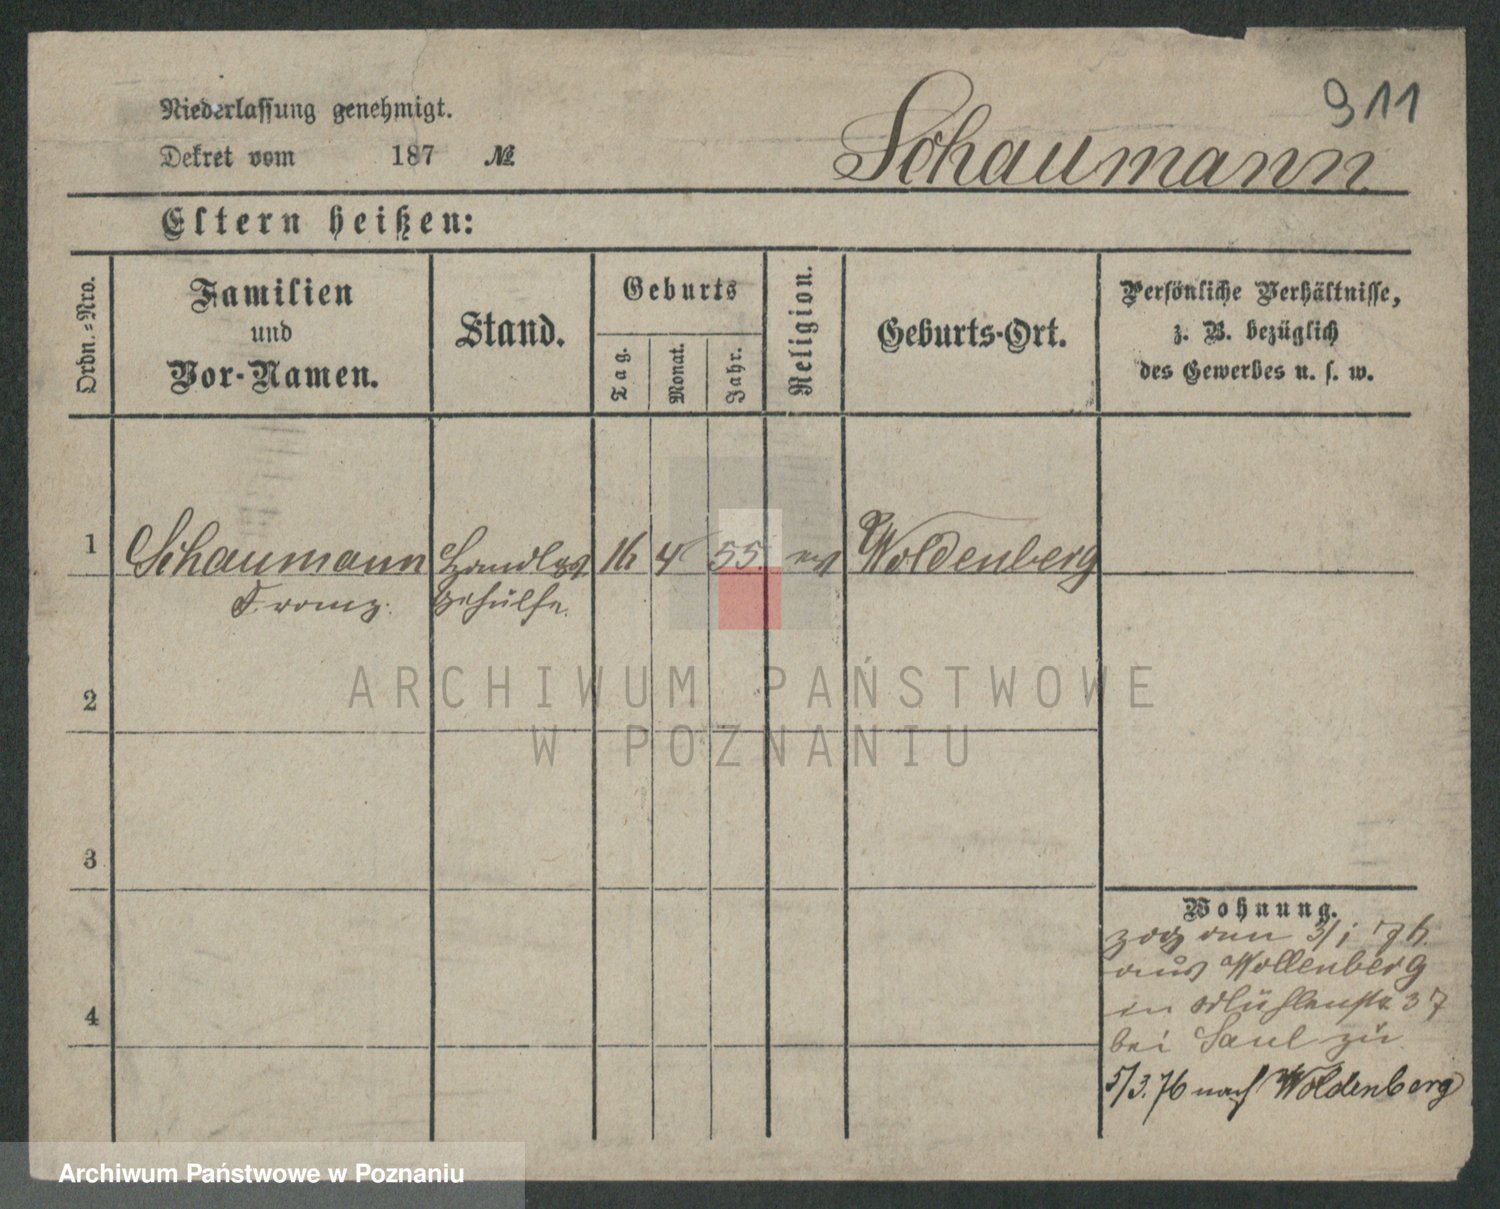 911
Niederlassung genehmigt.
Dekret vom 187 №
Schaumann
Eltern heißen:
Ordn.-Nro.
Familien
und
Vor-Namen.
Stand.
Geburts
Tag.
Monat.
Jahr.
Religion.
Geburts-Ort.
Persönliche Verhältnisse,
z. B. bezüglich
des Gewerbes u. s. w.
1 Schaumann Handlgs 16 4 55. Woldenberg
Franz. Gehülfe.
2
3
4
Wohnung.
zog den 3/1 76.
aus Wollenberg
in Mühlenstr 37
bei Saul zu
5/3.76 nach Woldenberg
ARCHIWUM PAŃSTWOWE
W POZNANIU
Archiwum Państwowe w Poznaniu